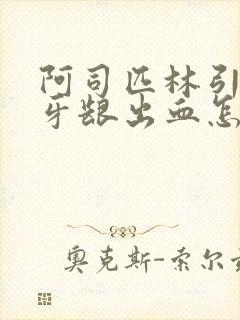 阿司匹林引
牙龈出血怎
奥克斯-索尔